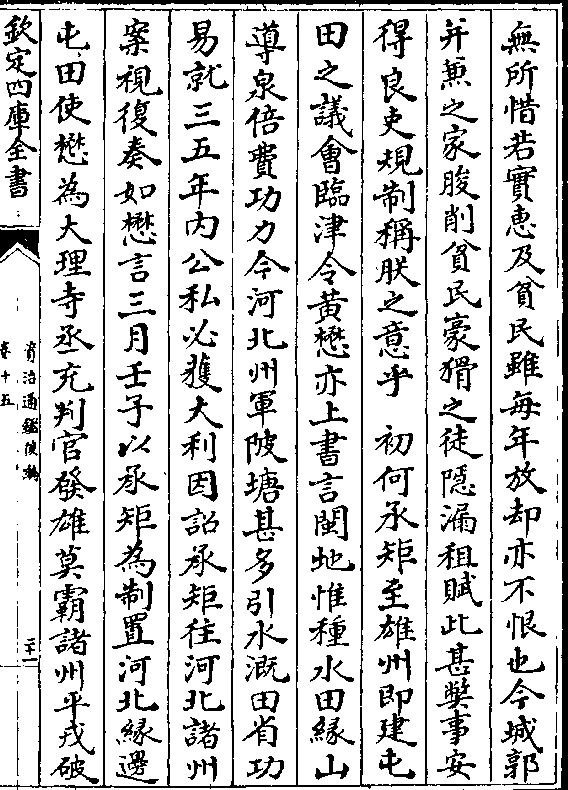 無所惜若實惠及貧民雖每年放却亦不恨也今城郭
并兼之家朘削貧民豪猾之徒隱漏租賦此甚弊事安
得良吏規制稱朕之意乎　初何承矩至雄州即建屯
田之議會臨津令黃懋亦上書言閩地惟種水田緣山
導泉倍費功力今河北州軍陂塘甚多引水溉田省功
易就三五年內公私必獲大利因詔承矩往河北諸州
案視復奏如懋言三月壬子以承矩為制置河北緣邊
屯田使懋為大理寺丞充判官發雄莫霸諸州平戎破
欽定四庫全書
資治通鑑後編
卷十五
二十一